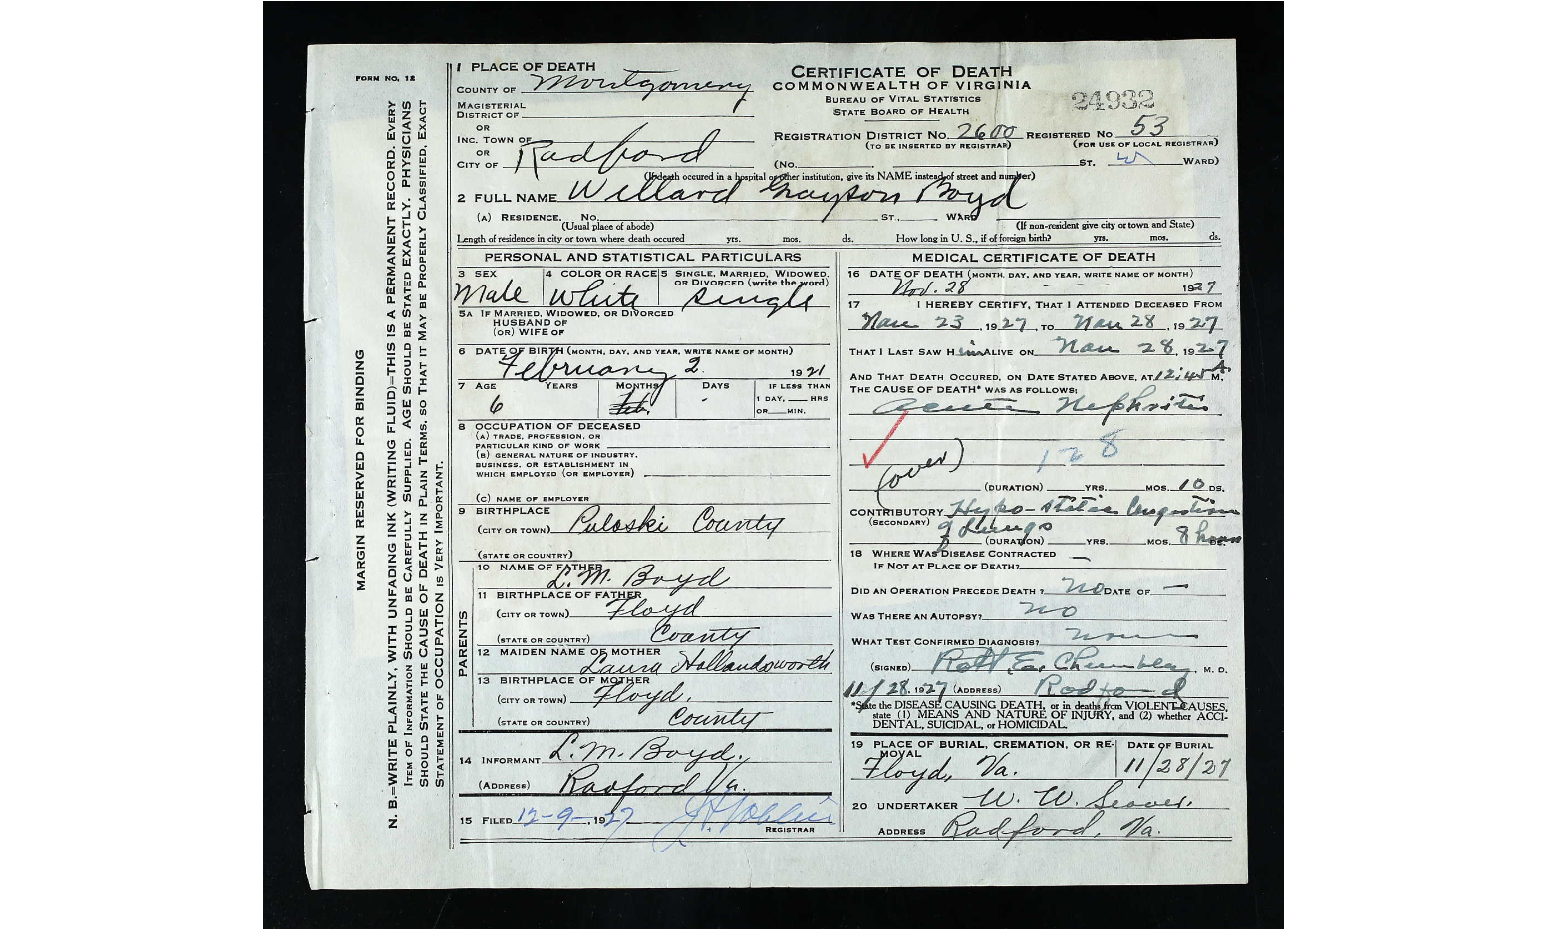 FORM NO. 12
MARGIN RESERVED FOR BINDING
N. B.=WRITE PLAINLY, WITH UNFADING INK (WRITING FLUID)=THIS IS A PERMANENT RECORD. EVERY
ITEM OF INFORMATION SHOULD BE CAREFULLY SUPPLIED. AGE SHOULD BE STATED EXACTLY. PHYSICIANS
SHOULD STATE THE CAUSE OF DEATH IN PLAIN TERMS, SO THAT IT MAY BE PROPERLY CLASSIFIED, EXACT
STATEMENT OF OCCUPATION IS VERY IMPORTANT.
1 PLACE OF DEATH
COUNTY OF Montgomery
MAGISTERIAL
DISTRICT OF
OR
INC. TOWN OF
OR
CITY OF Radford
CERTIFICATE OF DEATH
COMMONWEALTH OF VIRGINIA
BUREAU OF VITAL STATISTICS
STATE BOARD OF HEALTH
24932
REGISTRATION DISTRICT NO. 2600 REGISTERED NO 53
(TO BE INSERTED BY REGISTRAR) (FOR USE OF LOCAL REGISTRAR)
(NO. ST. W WARD)
(If death occured in a hospital or other institution, give its NAME instead of street and number)
2 FULL NAME Willard Grayson Boyd
(A) RESIDENCE. NO. ST., WARD
(Usual place of abode) (If non-resident give city or town and State)
Length of residence in city or town where death occured yrs. mos. ds. How long in U. S., if of foreign birth? yrs. mos. ds.
PERSONAL AND STATISTICAL PARTICULARS
3 SEX 4 COLOR OR RACE 5 SINGLE, MARRIED, WIDOWED,
OR DIVORCED (write the word)
Male White Single
5A IF MARRIED, WIDOWED, OR DIVORCED
HUSBAND OF
(OR) WIFE OF
6 DATE OF BIRTH (MONTH, DAY, AND YEAR, WRITE NAME OF MONTH)
February 2 1921
7 AGE YEARS MONTHS DAYS IF LESS THAN
1 DAY, HRS
OR MIN.
6 Feb. -
8 OCCUPATION OF DECEASED
(A) TRADE, PROFESSION, OR
PARTICULAR KIND OF WORK
(B) GENERAL NATURE OF INDUSTRY,
BUSINESS, OR ESTABLISHMENT IN
WHICH EMPLOYED (OR EMPLOYER)
(C) NAME OF EMPLOYER
9 BIRTHPLACE
(CITY OR TOWN) Puloski County
(STATE OR COUNTRY)
PARENTS
10 NAME OF FATHER
L. M. Boyd
11 BIRTHPLACE OF FATHER
(CITY OR TOWN) Floyd
(STATE OR COUNTRY) County
12 MAIDEN NAME OF MOTHER
Laura Hollandsworth
13 BIRTHPLACE OF MOTHER
(CITY OR TOWN) Floyd,
(STATE OR COUNTRY) County
14 INFORMANT L. M. Boyd.
(ADDRESS) Radford Va.
15 FILED 12-9-, 1927
REGISTRAR
MEDICAL CERTIFICATE OF DEATH
16 DATE OF DEATH (MONTH, DAY, AND YEAR, WRITE NAME OF MONTH)
Nov. 28 - - 1927
17 I HEREBY CERTIFY, THAT I ATTENDED DECEASED FROM
Nov 23, 1927, TO Nov 28, 1927
THAT I LAST SAW H im ALIVE ON Nov 28, 1927
AND THAT DEATH OCCURED, ON DATE STATED ABOVE, AT 12:45 A M.
THE CAUSE OF DEATH* WAS AS FOLLOWS:
Acute Nephritis
128
(over)
(DURATION) YRS. MOS. 10 DS.
CONTRIBUTORY Hypo-static Congestion
(SECONDARY) of Lungs
(DURATION) YRS. MOS. 8 hours DS.
18 WHERE WAS DISEASE CONTRACTED
IF NOT AT PLACE OF DEATH?
DID AN OPERATION PRECEDE DEATH? No DATE OF —
WAS THERE AN AUTOPSY? No
WHAT TEST CONFIRMED DIAGNOSIS? none
(SIGNED) , M. D.
11/28, 1927 (ADDRESS) Radford
*State the DISEASE CAUSING DEATH, or in deaths from VIOLENT CAUSES,
state (1) MEANS AND NATURE OF INJURY, and (2) whether ACCI-
DENTAL, SUICIDAL, or HOMICIDAL.
19 PLACE OF BURIAL, CREMATION, OR RE-
MOVAL
DATE OF BURIAL
Floyd, Va. 11/28/27
20 UNDERTAKER W. W. Seaver.
ADDRESS Radford, Va.